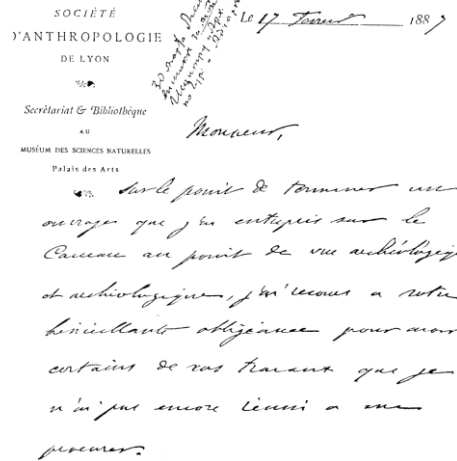 SOCIÉTÉ
D'ANTHROPOLOGIE
DE LYON
Secrétariat & Bibliothèque
AU
MUSÉUM DES SCIENCES NATURELLES
Palais des Arts
Le 17 1887
Monsieur,
Sur le point de terminer un
ouvrage que j'ai entrepris sur le
Caucase au point de vue archéologique
et, j'ai recours a votre
bienveillante obligeance pour avoir
certains de vos travaux que je
n'ai pas encore réussi a me
procurer.